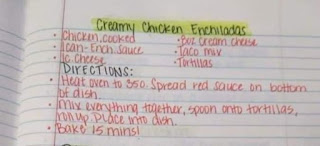 Creamy Chicken Enchiladas
• Chicken, cooked
• 8oz Cream cheese
• 1can-Ench. Sauce
• Taco mix
• 1c. Cheese
• Tortillas
DIRECTIONS:
• Heat oven to 350. Spread red sauce on bottom
of dish.
• Mix everything together, spoon onto tortillas,
roll up. Place into dish.
• Bake 15 mins!